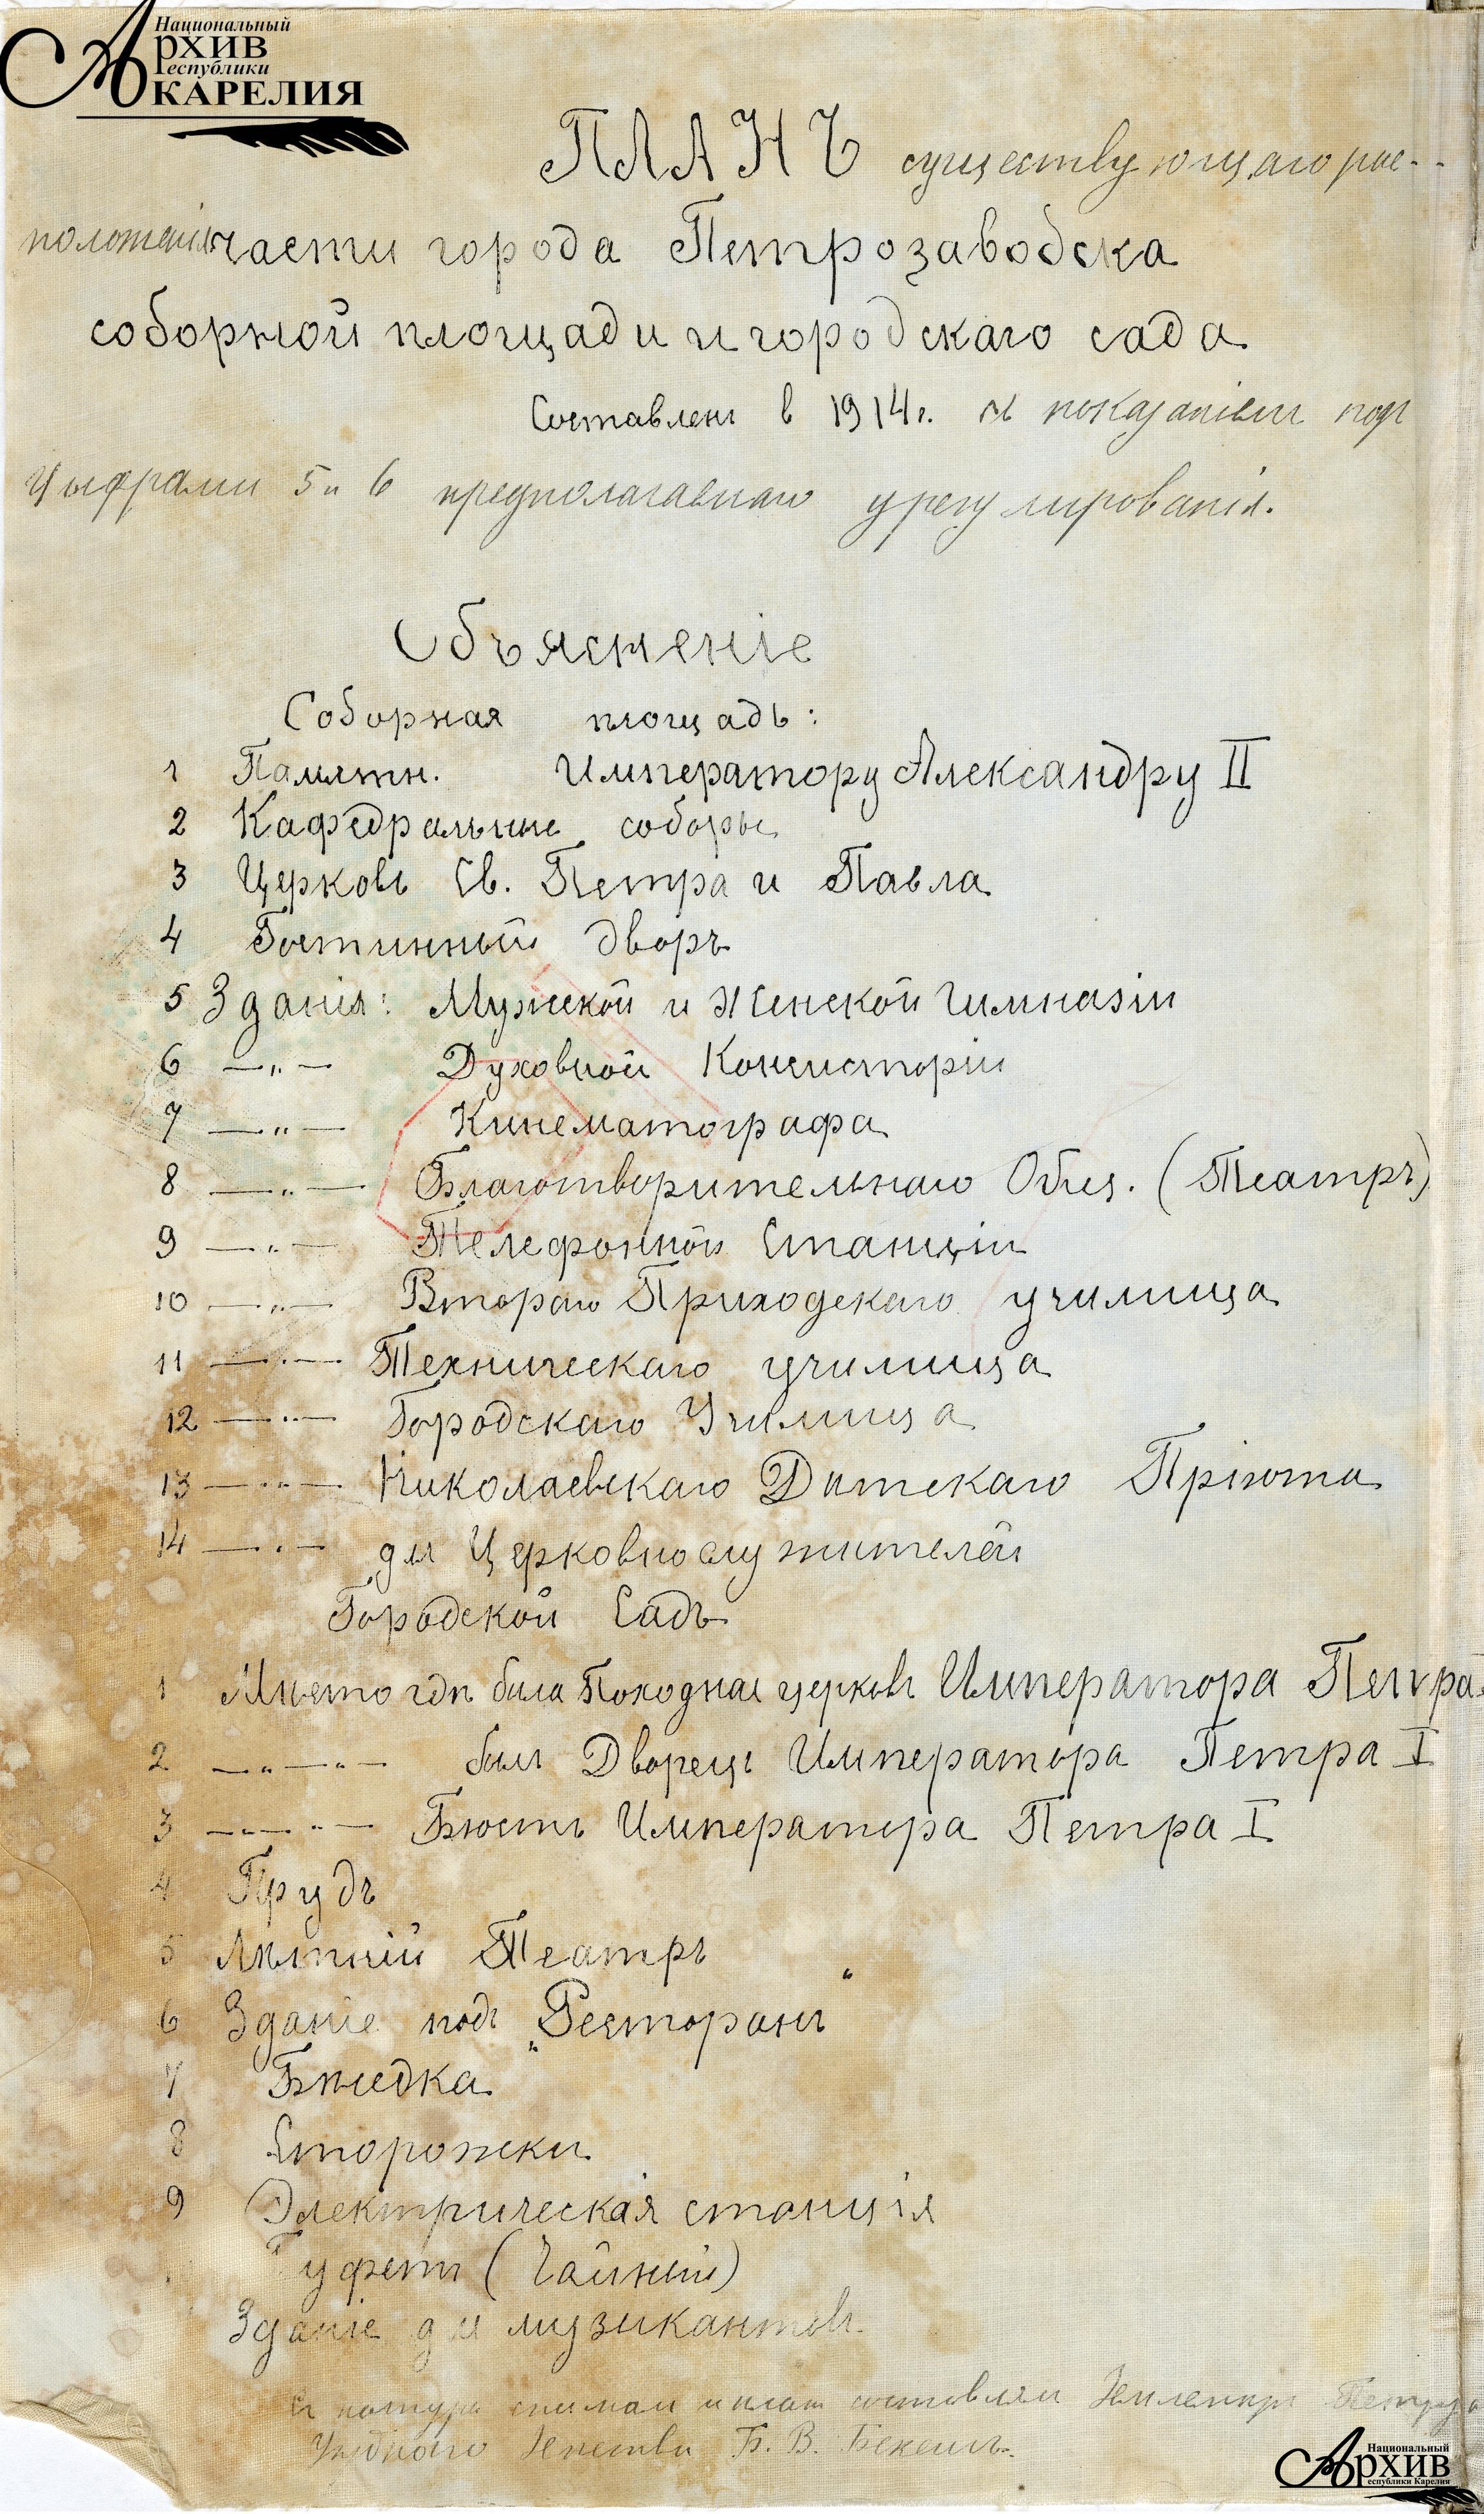 Национальный
Архив
Республики
КАРЕЛИЯ
ПЛАНЪ существующаго рас-
положенія части города Петрозаводска
соборной площади и городскаго сада
Составленъ в 1914 г. съ показаніемъ подъ
цыфрами 5 и 6 предполагаемаго урегулированія.
Объясненіе
Соборная площадь:
1 Памятн. Императору Александру II
2 Кафедральные соборы
3 Церковь Св. Петра и Павла
4 Гостинный дворъ
5 Зданія: Мужской и Женской Гимназіи
6 —„— Духовной Консисторіи
7 —„— Кинематографа
8 —„— Благотворительнаго Общ. (Театръ)
9 —„— Телефонной Станціи
10 —„— Втораго Приходскаго училища
11 —„— Техническаго училища
12 —„— Городскаго Училища
13 —„— Николаевскаго Дѣтскаго Пріюта
14 —„— для Церковнослужителей
Городской Садъ
1 Мѣсто гдѣ была Походная церковь Императора Петра
2 —„—„— былъ Дворецъ Императора Петра I
3 —„—„— Бюстъ Императора Петра I
4 Прудъ
5 Лѣтній Театръ
6 Зданіе подъ „Ресторанъ“
7 Бѣседка
8 Сторожки
9 Электрическая станція
Буфетъ (Чайный)
Зданіе для музикантовъ
Съ натуры снималъ и планъ составлялъ Землемѣръ
Уѣзднаго Земства Б. В.
Национальный
Архив
Республики Карелия